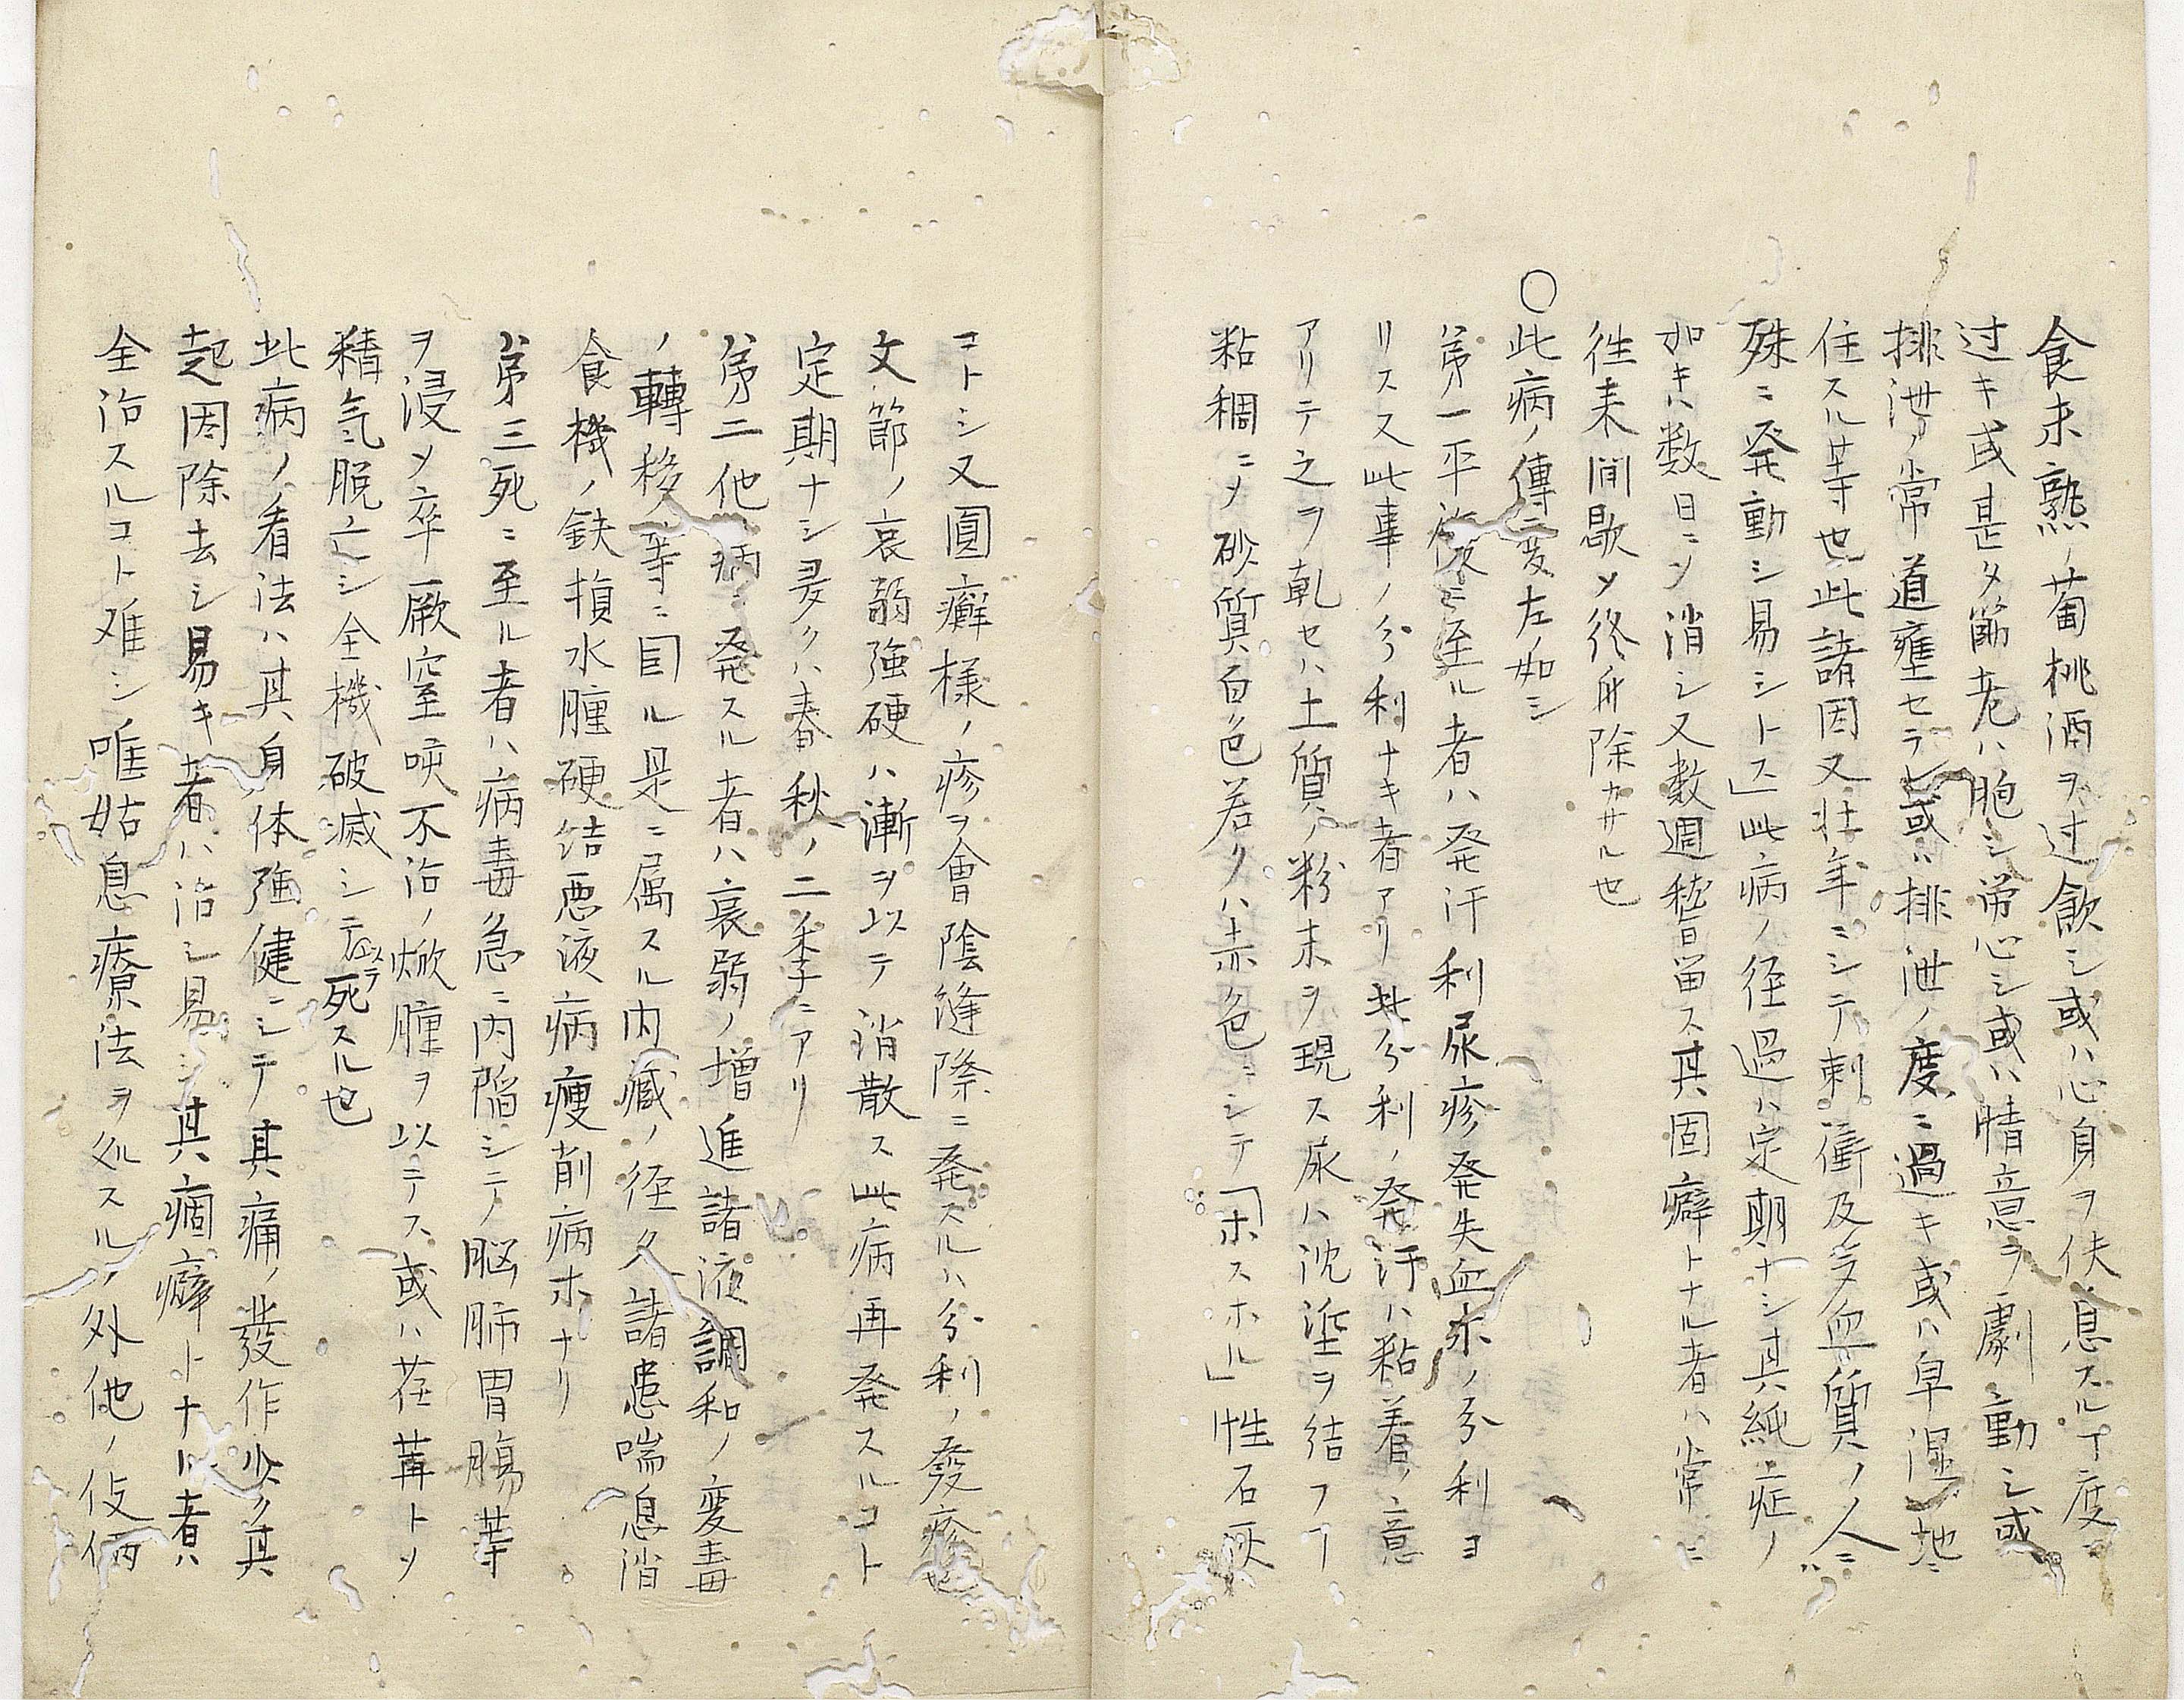 食未熟ノ葡桃酒ヲ过飲シ或ハ心身ヲ休息スルヿ度ニ
过キ或是タ筋老ハ胞シ労心シ或ハ情意ヲ劇動シ或
排泄ノ常道壅セラレ或ハ排泄ノ度ニ過キ或ハ卑湿ノ地ニ
住スル䒭也此諸因又壮年ニシテ刺衝及多血質ノ人ニ
殊ニ発動シ易シトス」此病ノ径過ハ定期ナシ其純症ノ
如キハ数日ニソ消シ又数週稽留ス其固癖トナル者ハ常ニ
徃来間歇メ終身除カサル也
〇此病ノ傳変左ノ如シ
第一平復ニ至ル者ハ発汗利尿疹発失血ホノ分利ヨ
リス又此事ノ分利ナキ者アリ此分利ノ発汗ハ粘着ノ意
アリテ之ヲ乾セハ土質ノ粉末ヲ現ス尿ハ沈垽ヲ結フヿ
粘稠ニメ砂質白色若クハ赤色ニシテ「ホスホル」性石灰
コトシ又圓癬様ノ疹ヲ會陰縫際ニ発スルハ分利ノ發疹也
文節ノ哀弱強硬ハ漸ヲ以テ消散ス此病再発スルコト
定期ナシ多クハ春秋ノ二季ニアリ
第二他病ニ発スル者ハ衰弱ノ増進諸液調和ノ変毒
ノ轉移等ニ因ル是ニ属スル内臓ノ径久諸患喘息消
食機ノ鈌損水腫硬結悪液病痩削病ホナリ
第三死ニ至ル者ハ病毒急ニ内陥シテ脳肺胃腸䒭
ヲ浸メ卒厥窒咳不治ノ焮腫ヲ以テス或ハ荏苒トメ
精气脱亡シ全機破滅シテ死スル也
此病ノ看法ハ其身体強健ニシテ其痛ノ發作少ク其
起因除去シ易キ者ハ治シ易シ其痼癖トナル者ハ
全治スルコト难シ唯姑息療法ヲ処スルノ外他ノ伎倆